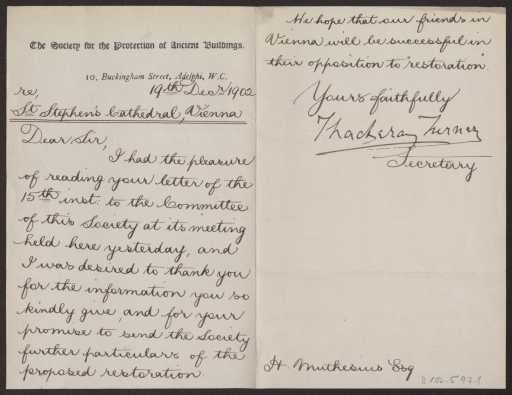 The Society for the Protection of Ancient Buildings.
10, Buckingham Street, Adelphi, W.C.
19th Decr 1902
re,
St Stephen's Cathedral, Vienna
Dear Sir,
I had the pleasure
of reading your letter of the
15th inst. to the Committee
of this Society at its meeting
held here yesterday, and
I was desired to thank you
for the information you so
kindly give, and for your
promise to send the Society
further particulars of the
proposed restoration
We hope that our friends in
Vienna will be successful in
their opposition to "restoration"
Yours faithfully
Thackeray Turner
Secretary
H. Muthesius Esq